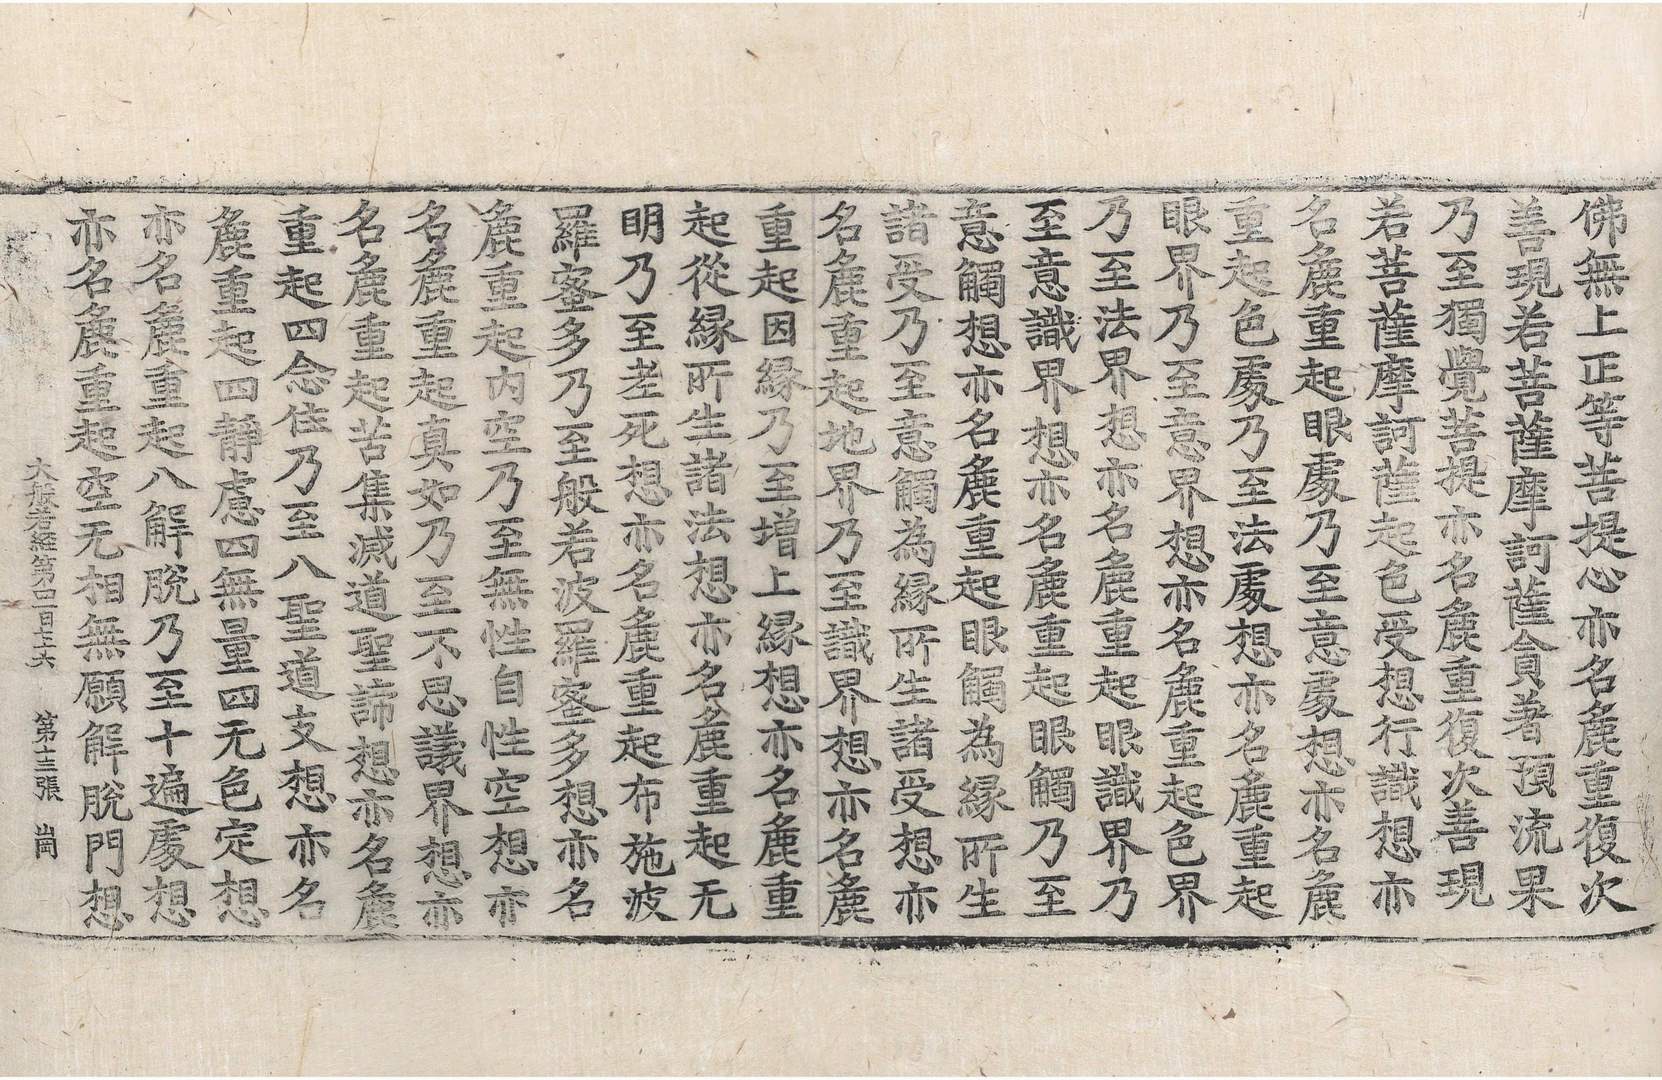 佛無上正等菩提心亦名麁重復次
善現若菩薩摩訶薩貪著預流果
乃至獨覺菩提亦名麁重復次善現
若菩薩摩訶薩起色受想行識想亦
名麁重起眼處乃至意處想亦名麁
重起色處乃至法處想亦名麁重起
眼界乃至意界想亦名麁重起色界
乃至法界想亦名麁重起眼識界乃
至意識界想亦名麁重起眼觸乃至
意觸想亦名麁重起眼觸為緣所生
諸受乃至意觸為緣所生諸受想亦
名麁重起地界乃至識界想亦名麁
重起因緣乃至增上緣想亦名麁重
起從緣所生諸法想亦名麁重起无
明乃至老死想亦名麁重起布施波
羅蜜多乃至般若波羅蜜多想亦名
麁重起內空乃至無性自性空想亦
名麁重起真如乃至不思議界想亦
名麁重起苦集滅道聖諦想亦名麁
重起四念住乃至八聖道支想亦名
麁重起四靜慮四無量四无色定想
亦名麁重起八解脫乃至十遍處想
亦名麁重起空无相無願解脫門想
大般若經第四百七十六 第十三張 崗